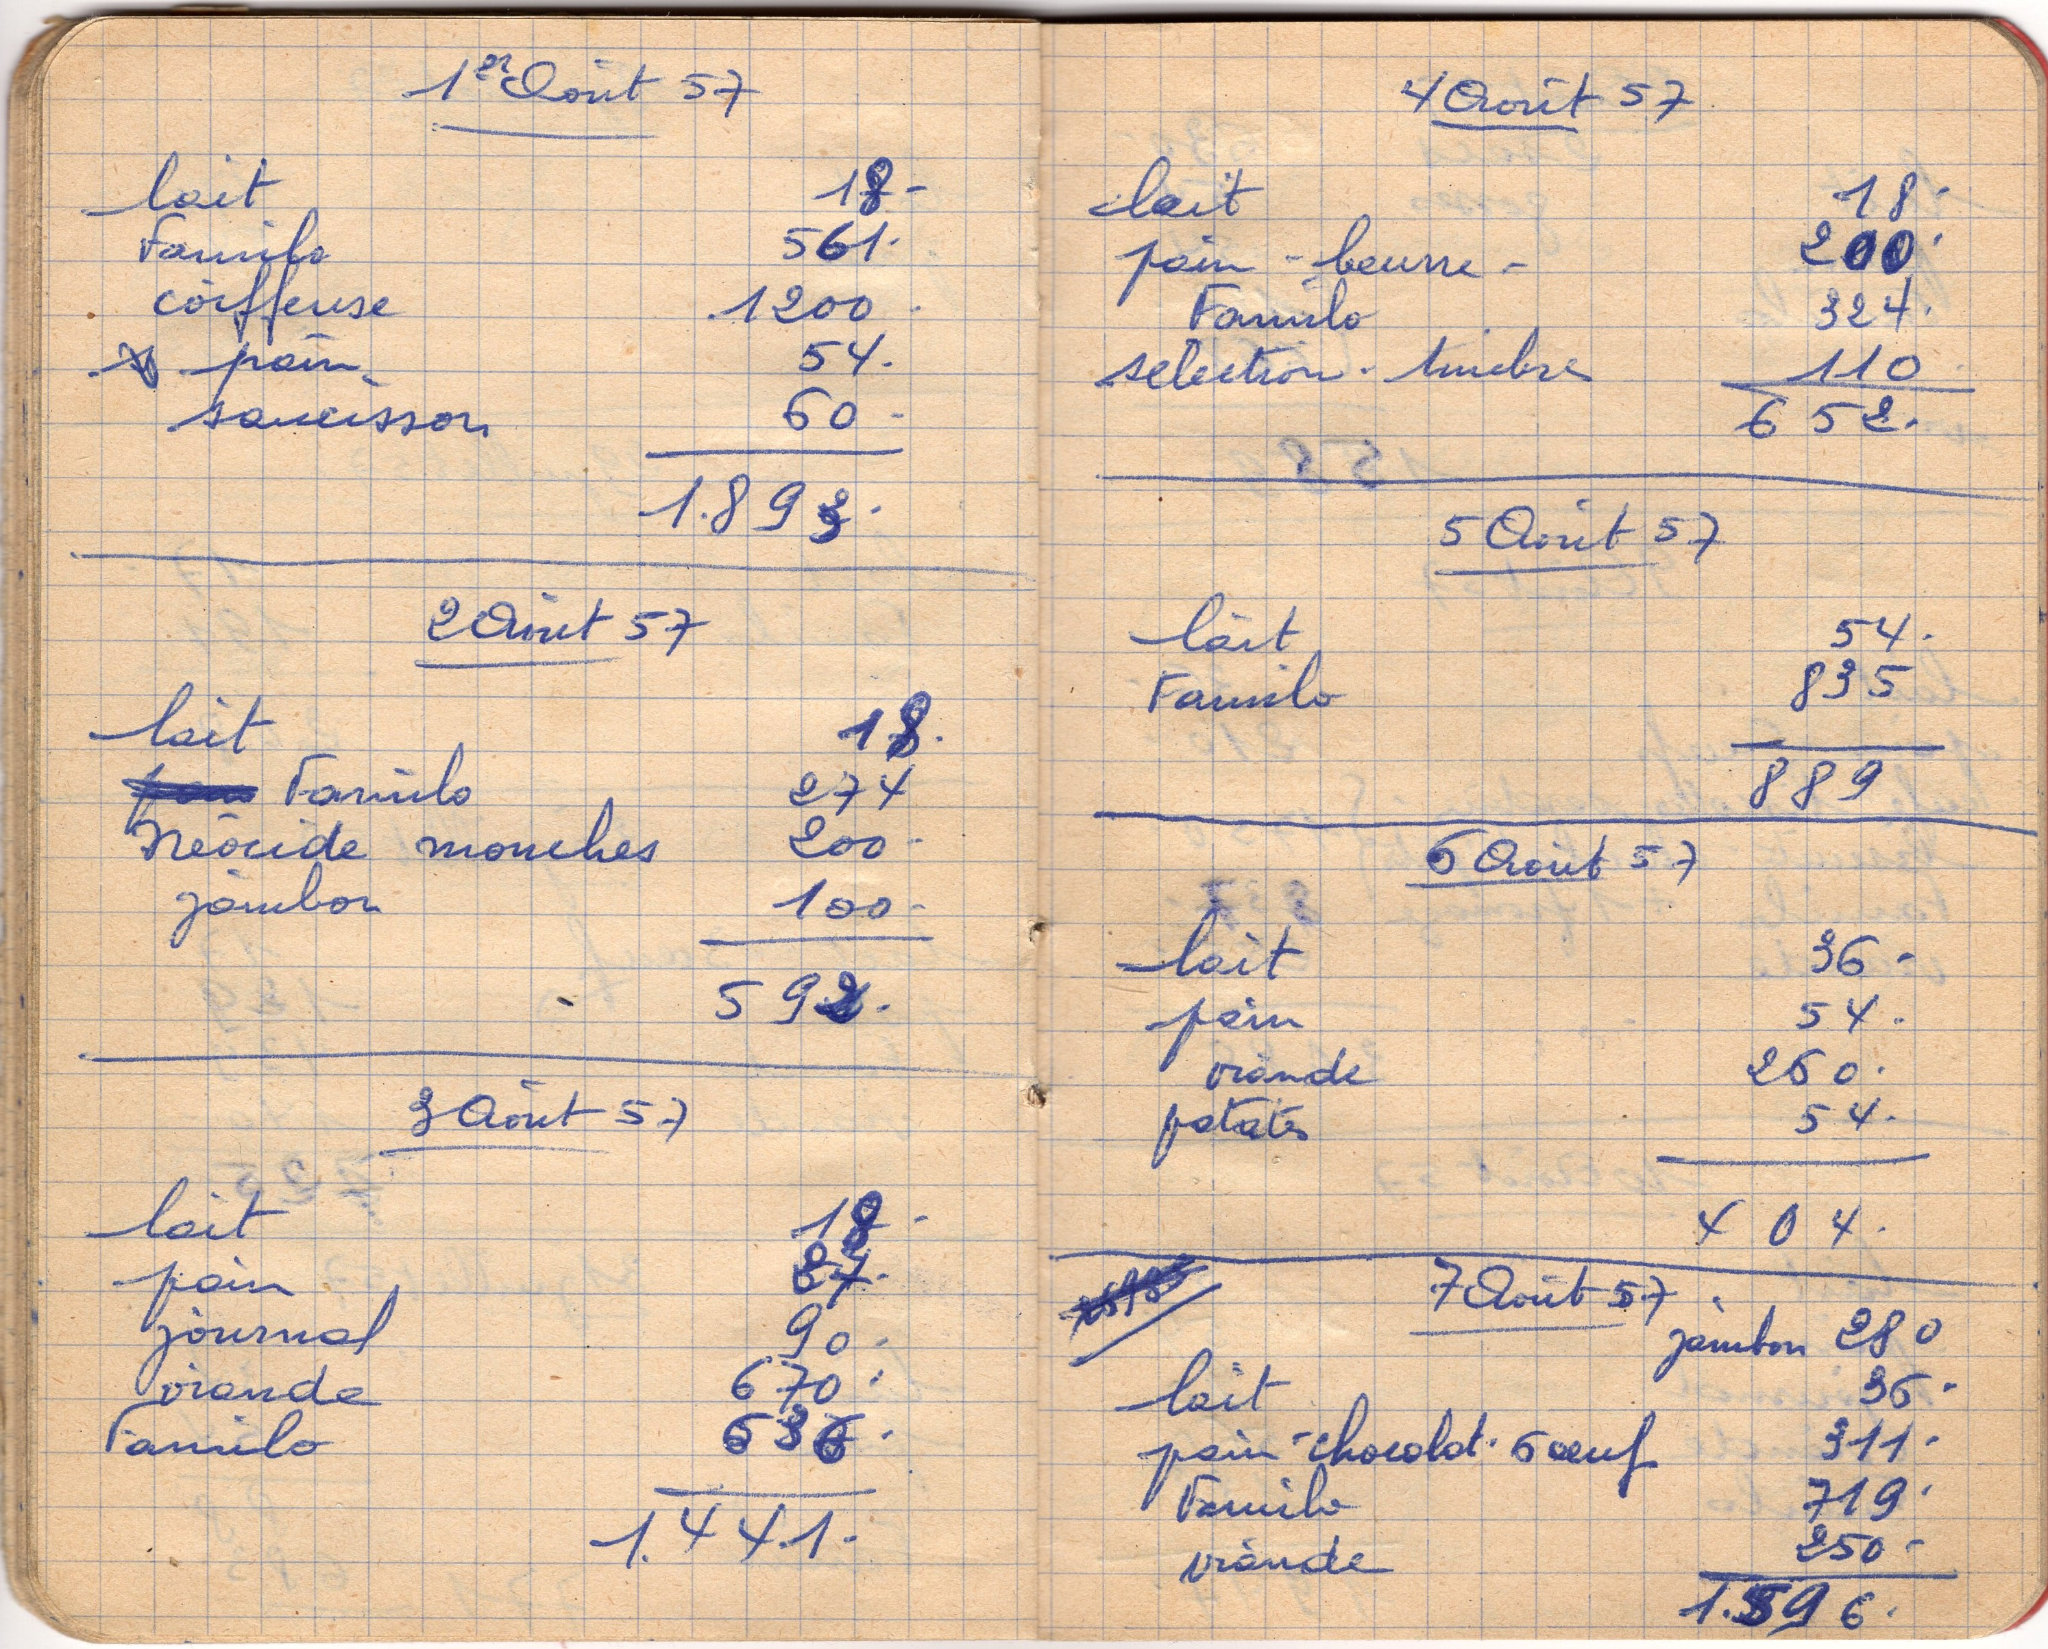 1er Août 57
lait 18-
Familo 561.
coiffeuse 1200.
pain 54.
saucisson 60-
1.893.
2 Août 57
lait 18.
Familo 274
Néocide mouches 200.
jambon 100-
592.
3 Août 57
lait 18-
pain 27.
journal 90.
viande 670.
Familo 636.
1.441.
4 Août 57
lait 18.
pain - beurre - 200.
Familo 324.
selection - timbre 110.
652.
5 Août 57
lait 54.
Familo 835
889
6 Août 57
lait 36-
pain 54.
viande 260.
patates 54.
404.
7 Août 57
jambon 280
lait 36.
pain - chocolat. 6 œuf 311.
Familo 719.
viande 250-
1.596.